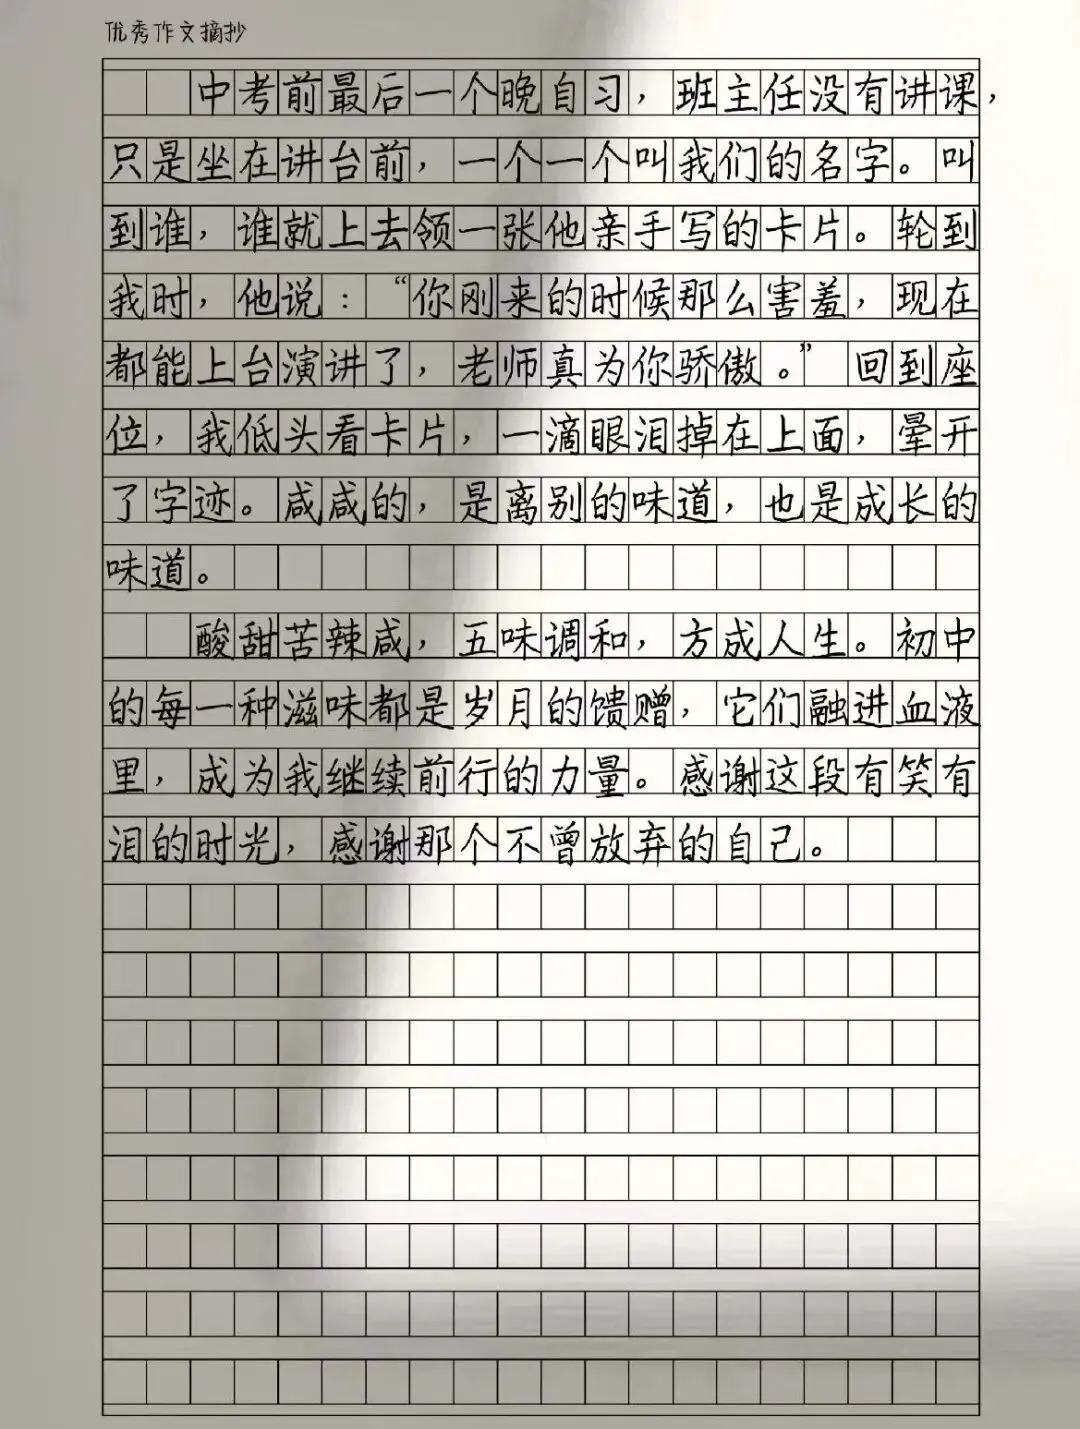 优秀作文摘抄
中考前最后一个晚自习，班主任没有讲课，
只是坐在讲台前，一个一个叫我们的名字。叫
到谁，谁就上去领一张他亲手写的卡片。轮到
我时，他说：“你刚来的时候那么害羞，现在
都能上台演讲了，老师真为你骄傲。”回到座
位，我低头看卡片，一滴眼泪掉在上面，晕开
了字迹。咸咸的，是离别的味道，也是成长的
味道。
酸甜苦辣咸，五味调和，方成人生。初中
的每一种滋味都是岁月的馈赠，它们融进血液
里，成为我继续前行的力量。感谢这段有笑有
泪的时光，感谢那个不曾放弃的自己。